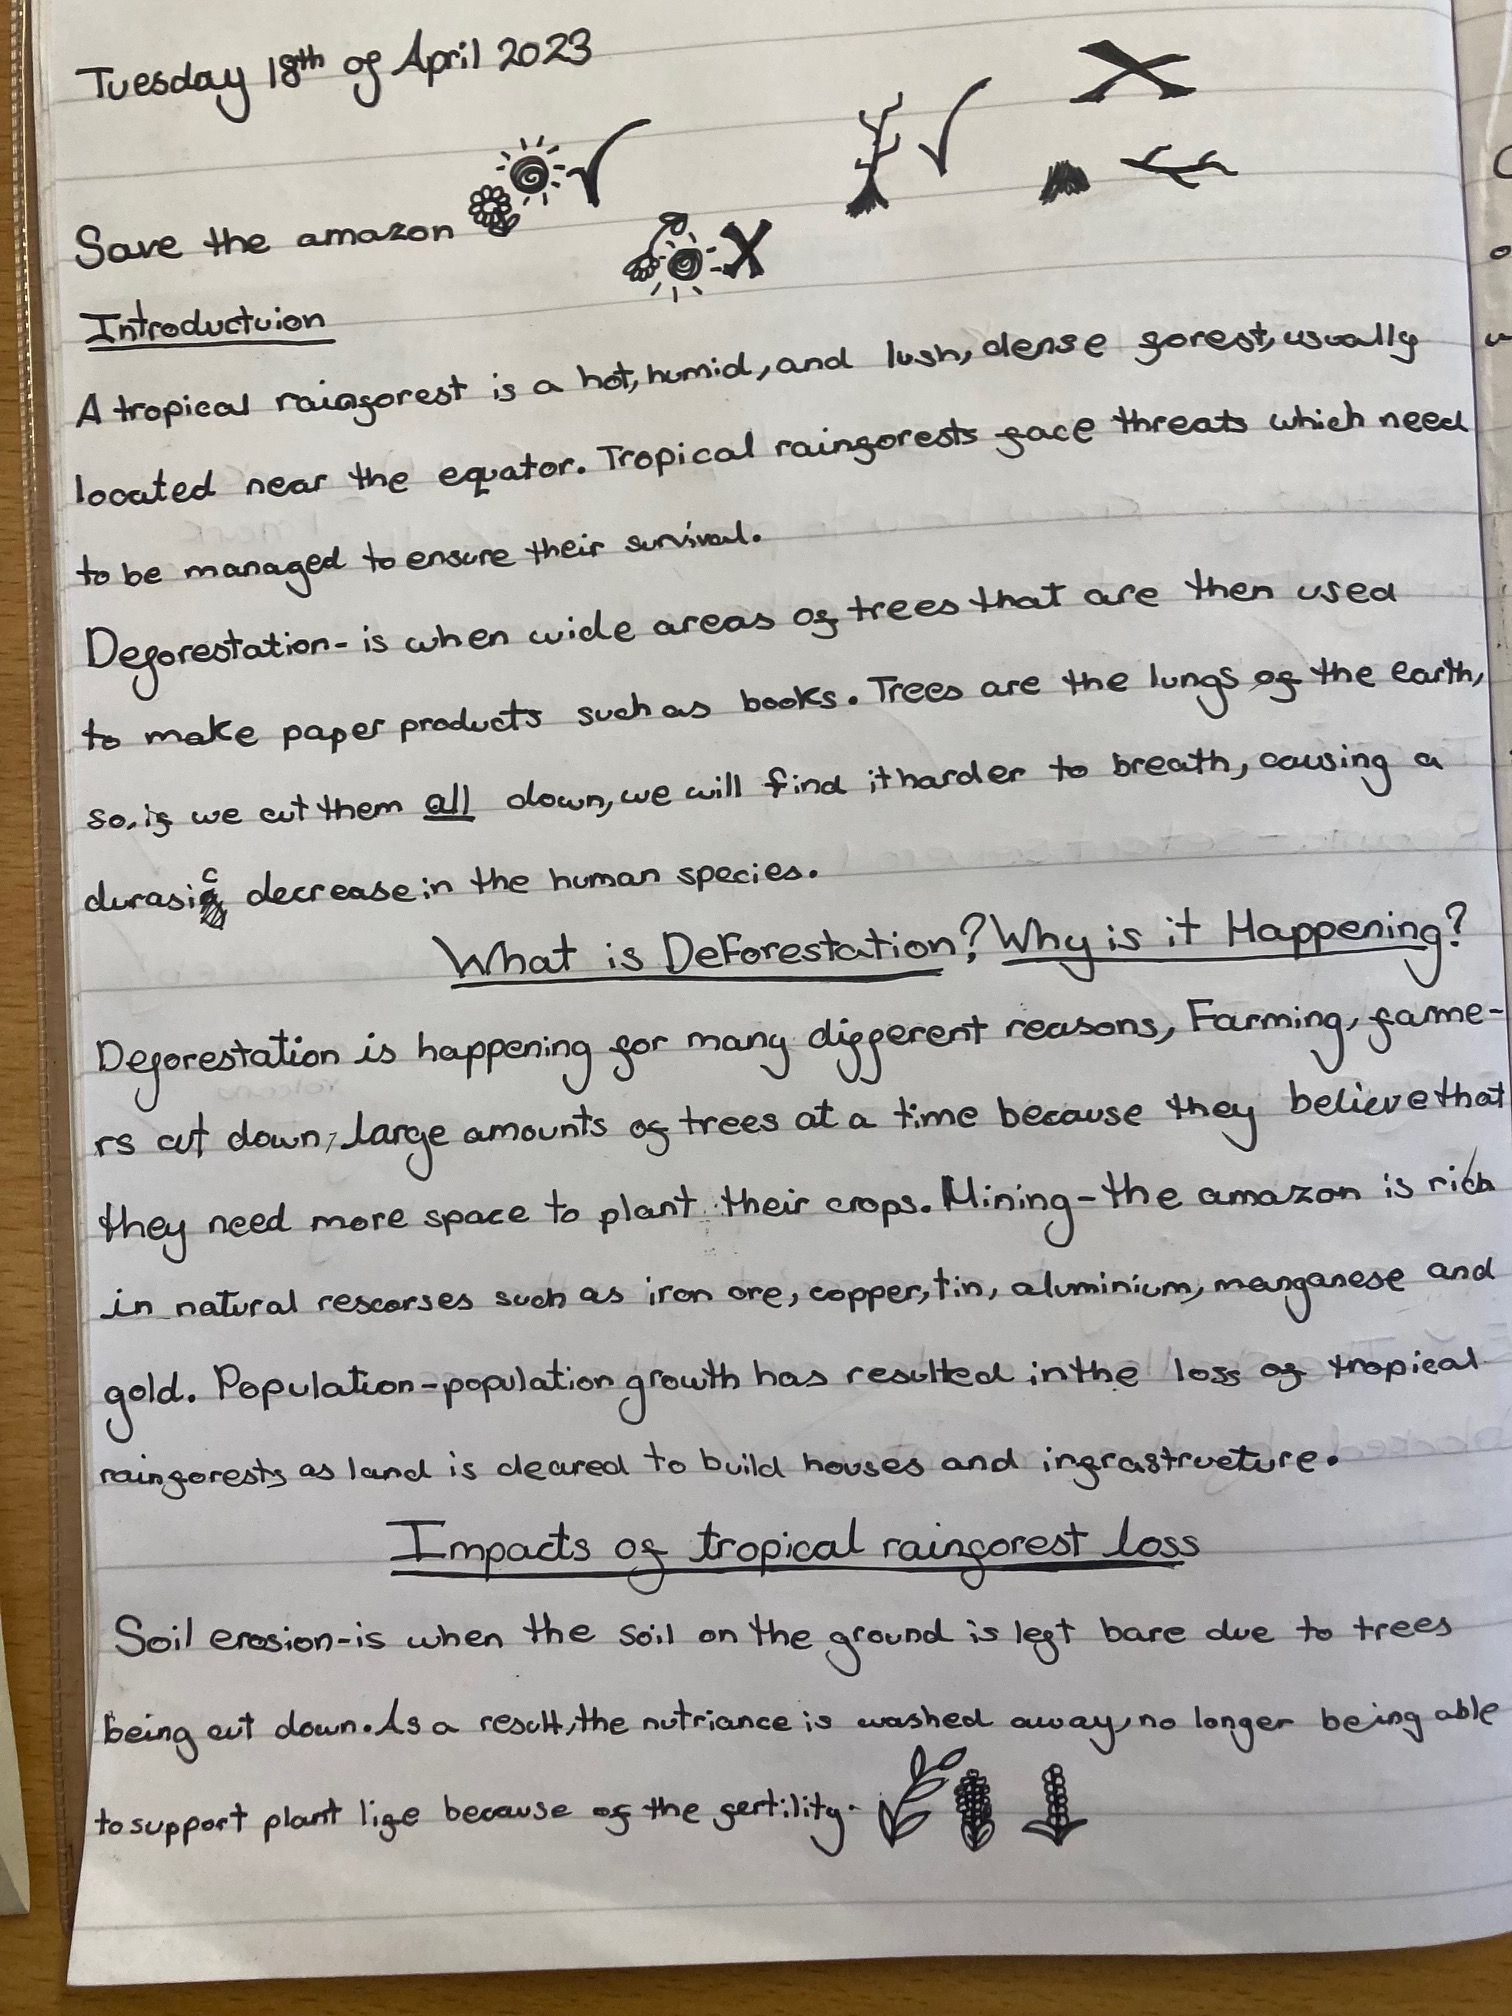 Tuesday 18th of April 2023
Save the amazon
Introductuion
A tropical rainforest is a hot, humid, and lush, dense forest, usually
located near the equator. Tropical rainforests face threats which need
to be managed to ensure their survival.
Deforestation- is when wide areas of trees that are then used
to make paper products such as books. Trees are the lungs of the earth,
so, if we cut them all down, we will find it harder to breath, causing a
durasic decrease in the human species.
What is Deforestation? Why is it Happening?
Deforestation is happening for many different reasons, Farming, fame-
rs cut down, large amounts of trees at a time because they believe that
they need more space to plant their crops. Mining-the amazon is rich
in natural rescorses such as iron ore, copper, tin, aluminium, manganese and
gold. Population-population growth has resulted in the loss of tropical
rainforests as land is cleared to build houses and infrastructure.
Impacts of tropical rainforest loss
Soil erosion-is when the soil on the ground is left bare due to trees
being cut down. As a result, the nutriance is washed away, no longer being able
to support plant life because of the fertility.